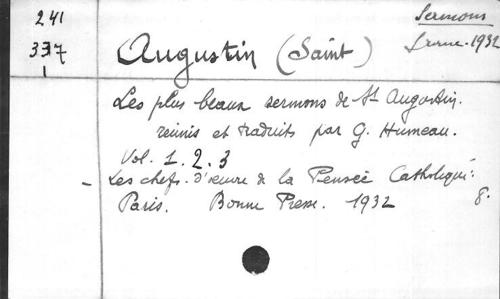 241
337
1
Sermons
1932
Augustin (Saint)
Les plus beaux sermons de St Augustin.
réunis et traduits par G. Humeau.
Vol. 1. 2. 3
- Les chefs. d'œuvre de la Pensée Catholique.
Paris. Bonne Presse. 1932 8.